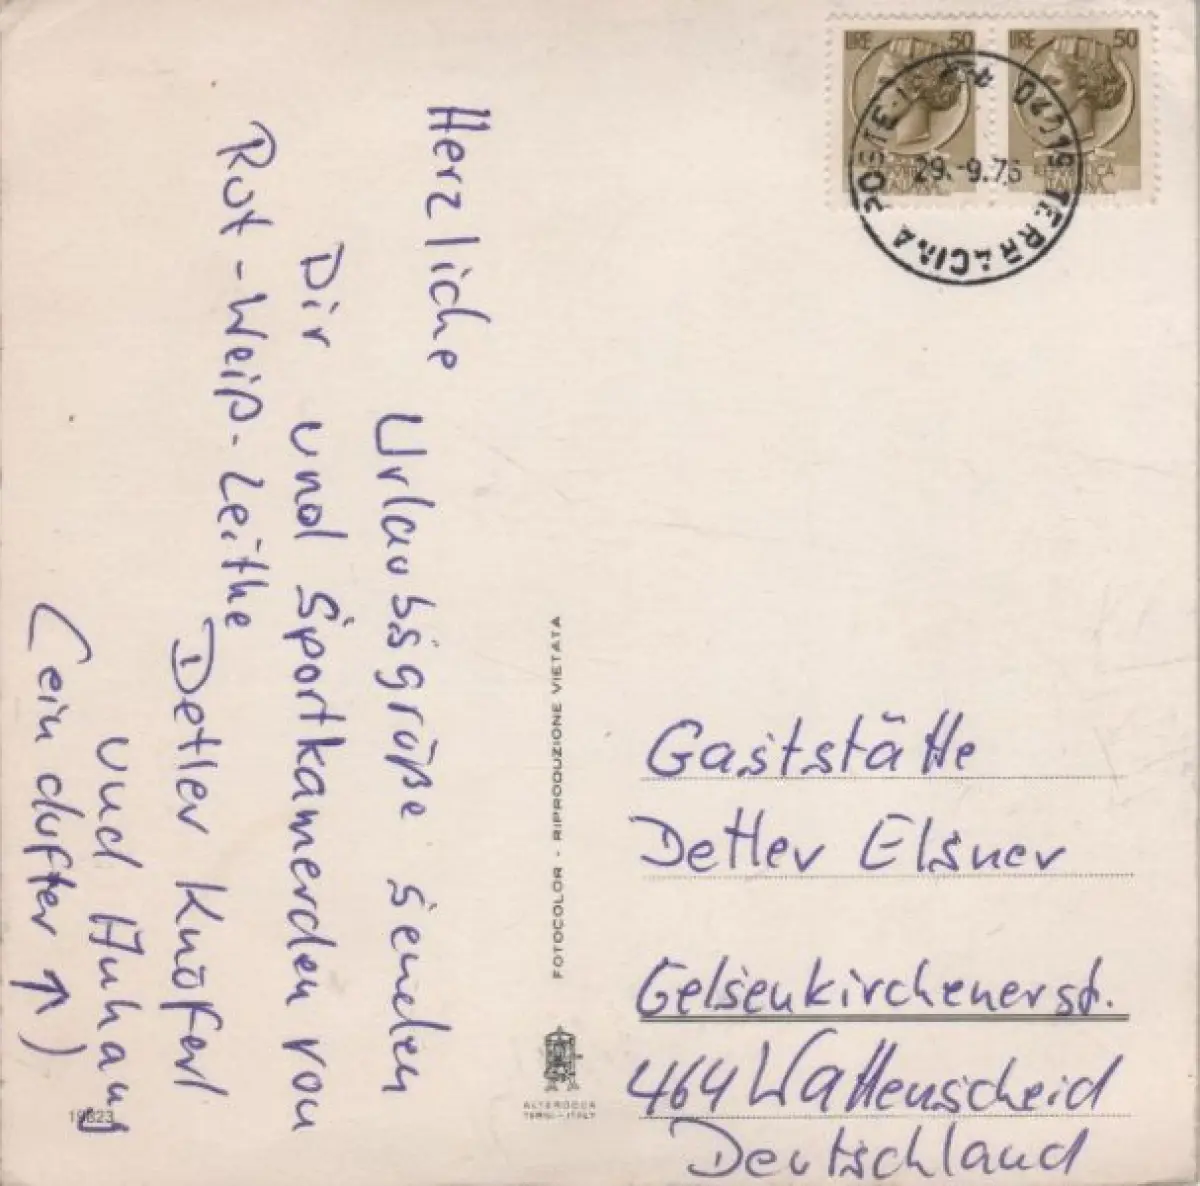 Herzliche
Urlaubsgrüße senden
Dir und Sportkamerden von
Rot-Weiß-Leithe
Detlev Knöferl
und Anhang
(ein dufter ↑)
19823
FOTOCOLOR - RIPRODUZIONE VIETATA
ALTEROCCA
TERNI-ITALY
LIRE 50
LIRE 50
REPUBBLICA
ITALIANA
04019 TERRACINA POSTE
29.-9.76
Gaststätte
Detlev Elsner
Gelsenkirchenerst.
464 Wattenscheid
Deutschland